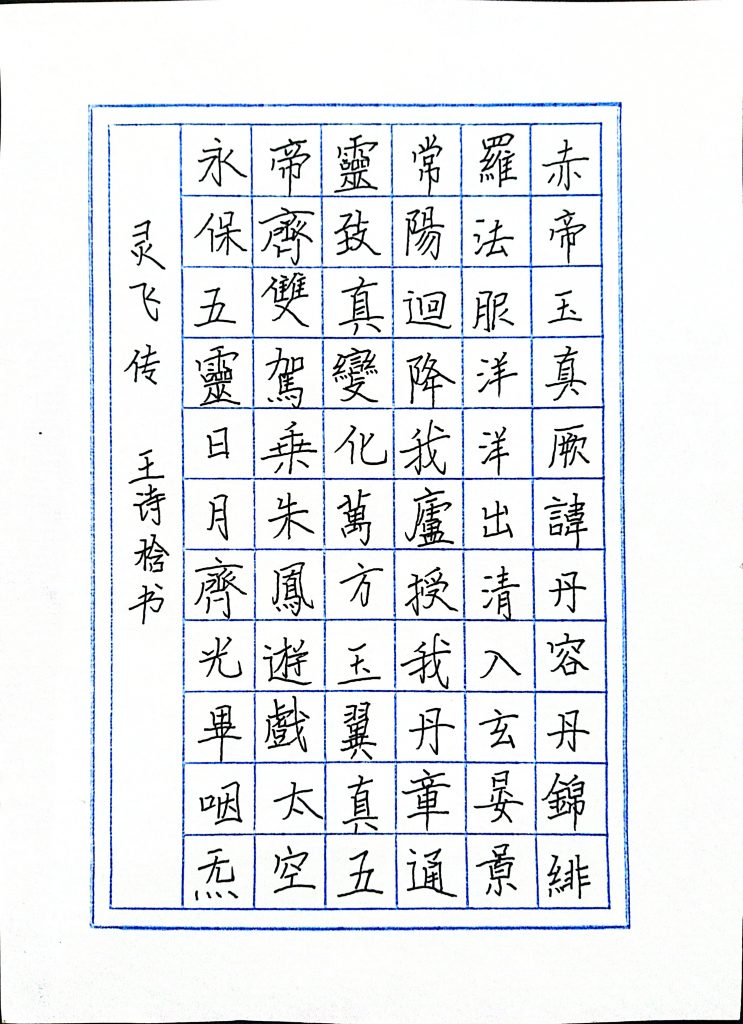 赤帝玉真厥諱丹容丹錦緋
羅法服洋洋出清入玄晏景
常陽迴降我廬授我丹章通
靈致真變化萬方玉翼真五
帝齊雙駕乗朱鳳遊戲太空
永保五靈日月齊光畢咽炁
灵飞传 王诗桧书